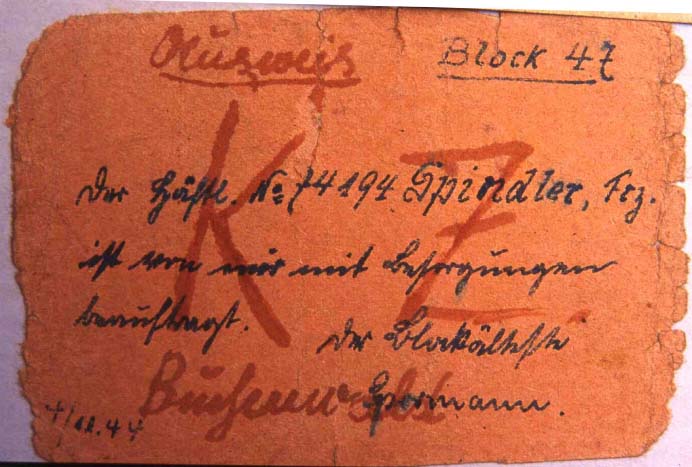 Ausweis Block 47
K Z.
Der Häftl. № 74194 Spindler, Frz.
ist von mir mit Besorgungen
beauftragt.
Der Blockälteste
Buchenwald